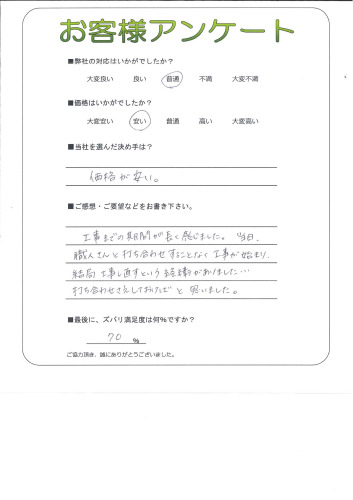 お客様アンケート
■弊社の対応はいかがでしたか？
大変良い　良い　普通　不満　大変不満
■価格はいかがでしたか？
大変安い　安い　普通　高い　大変高い
■当社を選んだ決め手は？
価格が安い。
■ご感想・ご要望などをお書き下さい。
工事までの期間が長く感じました。当日、
職人さんと打ち合わせすることなく工事が始まり、
結局工事し直すという経緯がありました…
打ち合わせさえしておけばと思いました。
■最後に、ズバリ満足度は何%ですか？
70 %
ご協力頂き、誠にありがとうございました。